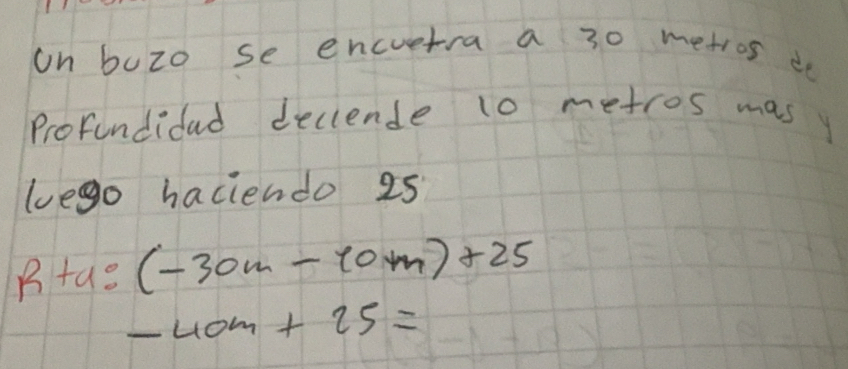 Un buzo se encuetra a 30 metros de
Profundidad deciende 10 metros mas y
luego haciendo 25
Rta: (-30m - 10m) + 25
- 40m + 25 =